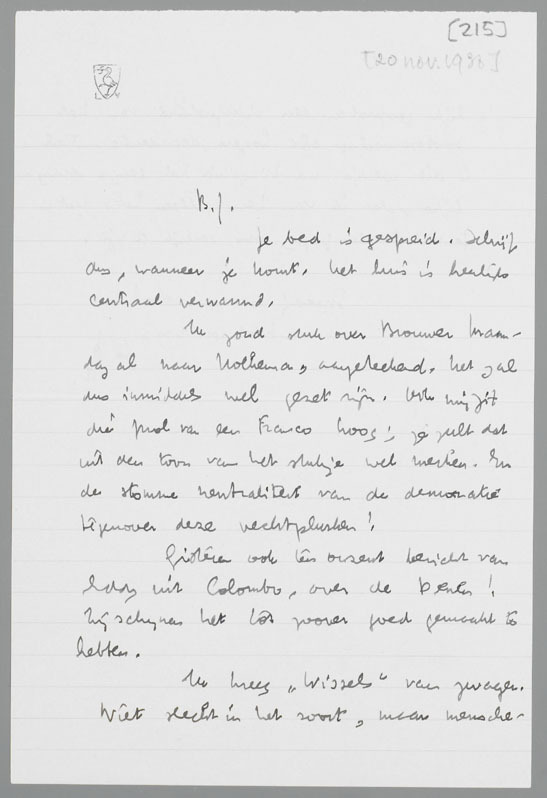 [215]
[20 nov. 1936]
B.J.
Je bed is gespreid. Schrijf
dus, wanneer je komt. Het huis is heerlijk
centraal verwarmd.
Ik zond stuk over Brouwer Maan-
dag al naar Holkema, aangetekend. Het zal
dus inmiddels wel gezet zijn. Ook mij zit
die prol van een Franco hoog; je zult dat
uit den toon van het stukje wel merken. En
de stomme neutraliteit van de democratie
tegenover deze vechtplurken!
Gisteren ook een bericht van
Eddy uit Colombo, over de
Hij schijnen het tot zoover goed gemaakt te
hebben.
Ik kreeg „Wissels" van zwager.
Niet slecht in het soort, maar mensche-